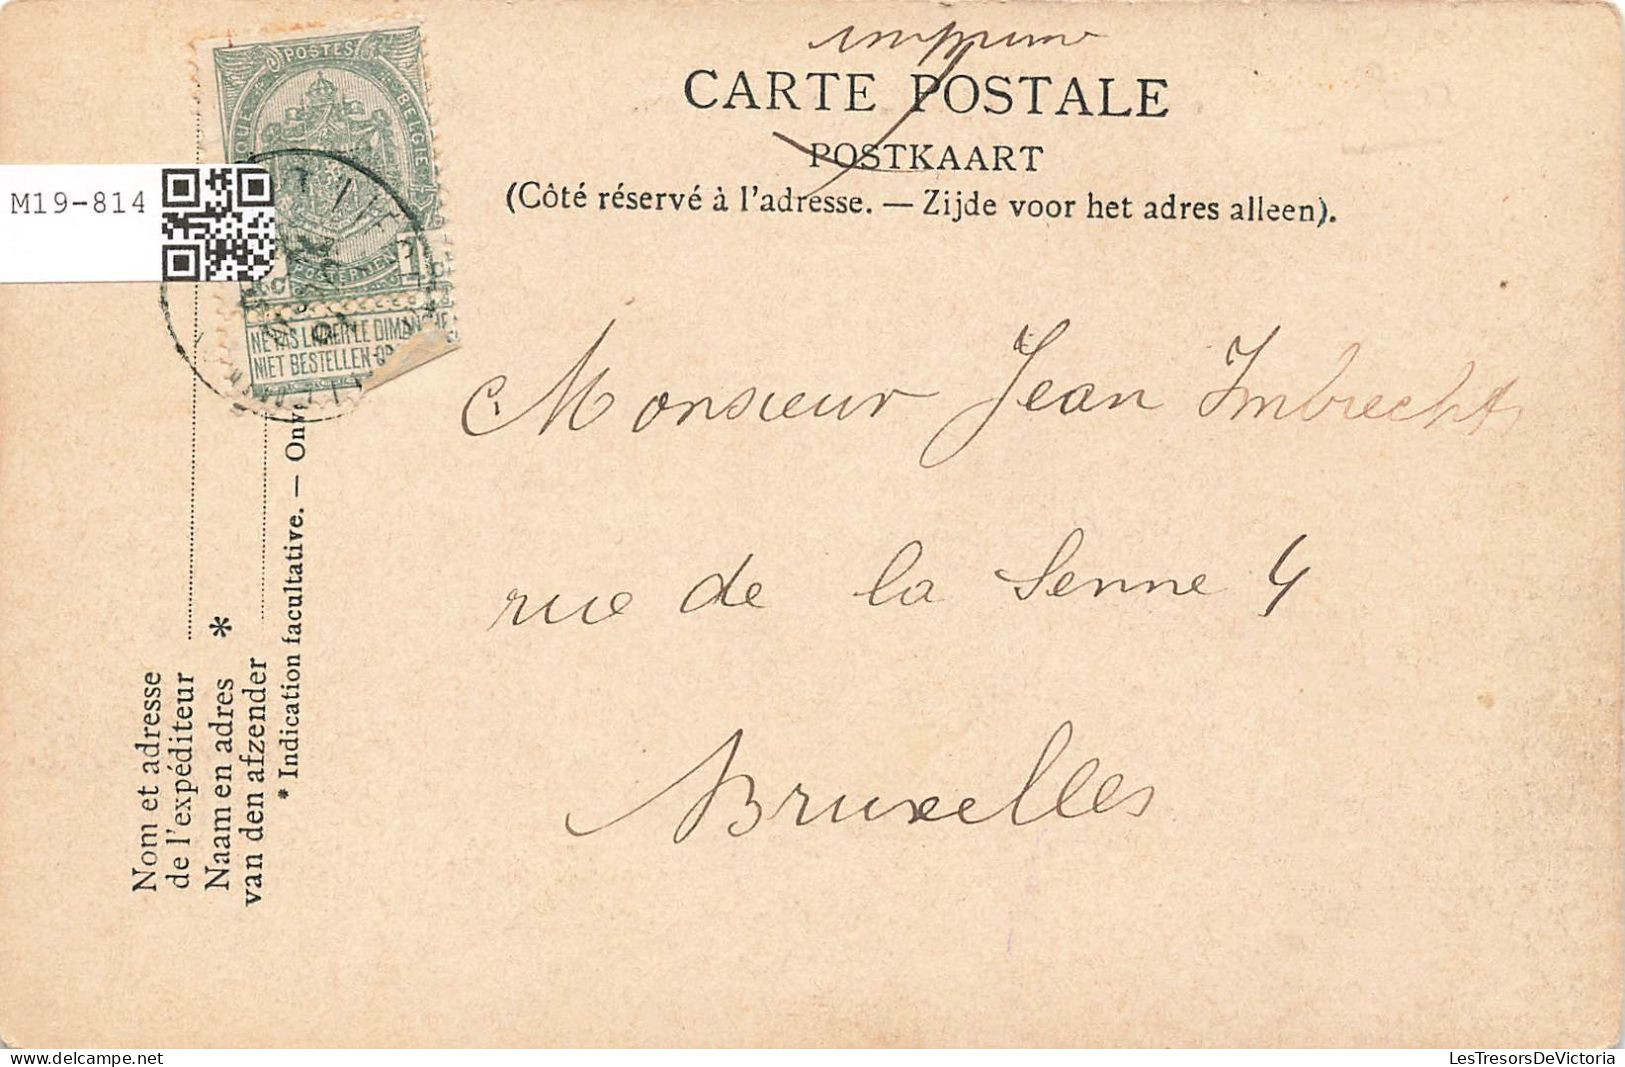 imprimé
CARTE POSTALE
POSTKAART
(Côté réservé à l'adresse. — Zijde voor het adres alleen).
POSTES
BELGIE
POSTERIJEN
NE PAS LIVRER LE DIMANCHE
NIET BESTELLEN OP
M19-814
Monsieur Jean Imbrechts
rue de la Senne 4
Bruxelles
Nom et adresse
de l'expéditeur
Naam en adres *
van den afzender
* Indication facultative. — Onv
LesTresorsDeVictoria
delcampe.net